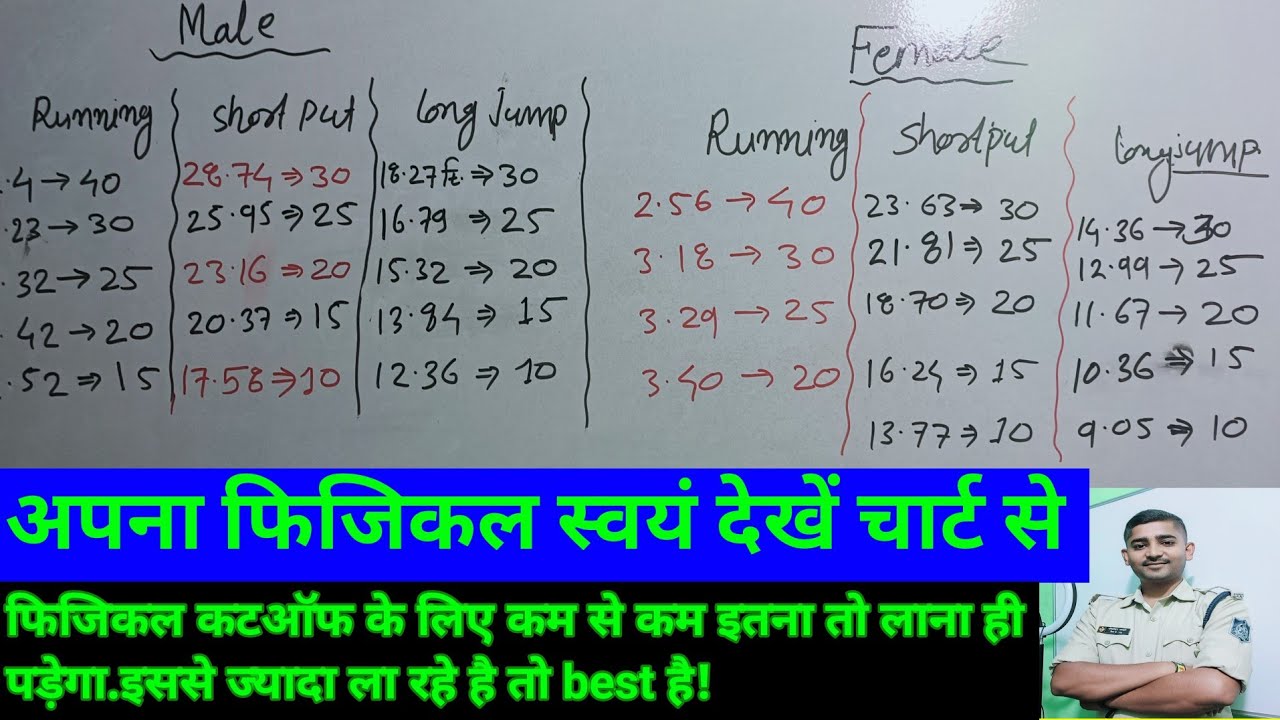 Male
Running
Short Put
Long Jump
.4 → 40
28.74 ⇒ 30
18.27 फि. ⇒ 30
.23 → 30
25.95 ⇒ 25
16.79 ⇒ 25
.32 → 25
23.16 ⇒ 20
15.32 ⇒ 20
.42 → 20
20.37 ⇒ 15
13.84 ⇒ 15
.52 ⇒ 15
17.58 ⇒ 10
12.36 ⇒ 10
Female
Running
Shortput
Long jump
2.56 → 40
23.63 ⇒ 30
14.36 → 30
3.18 → 30
21.81 ⇒ 25
12.99 → 25
3.29 → 25
18.70 ⇒ 20
11.67 → 20
3.40 → 20
16.24 ⇒ 15
10.36 ⇒ 15
13.77 ⇒ 10
9.05 ⇒ 10
अपना फिजिकल स्वयं देखें चार्ट से
फिजिकल कटऑफ के लिए कम से कम इतना तो लाना ही
पड़ेगा.इससे ज्यादा ला रहे है तो best है!